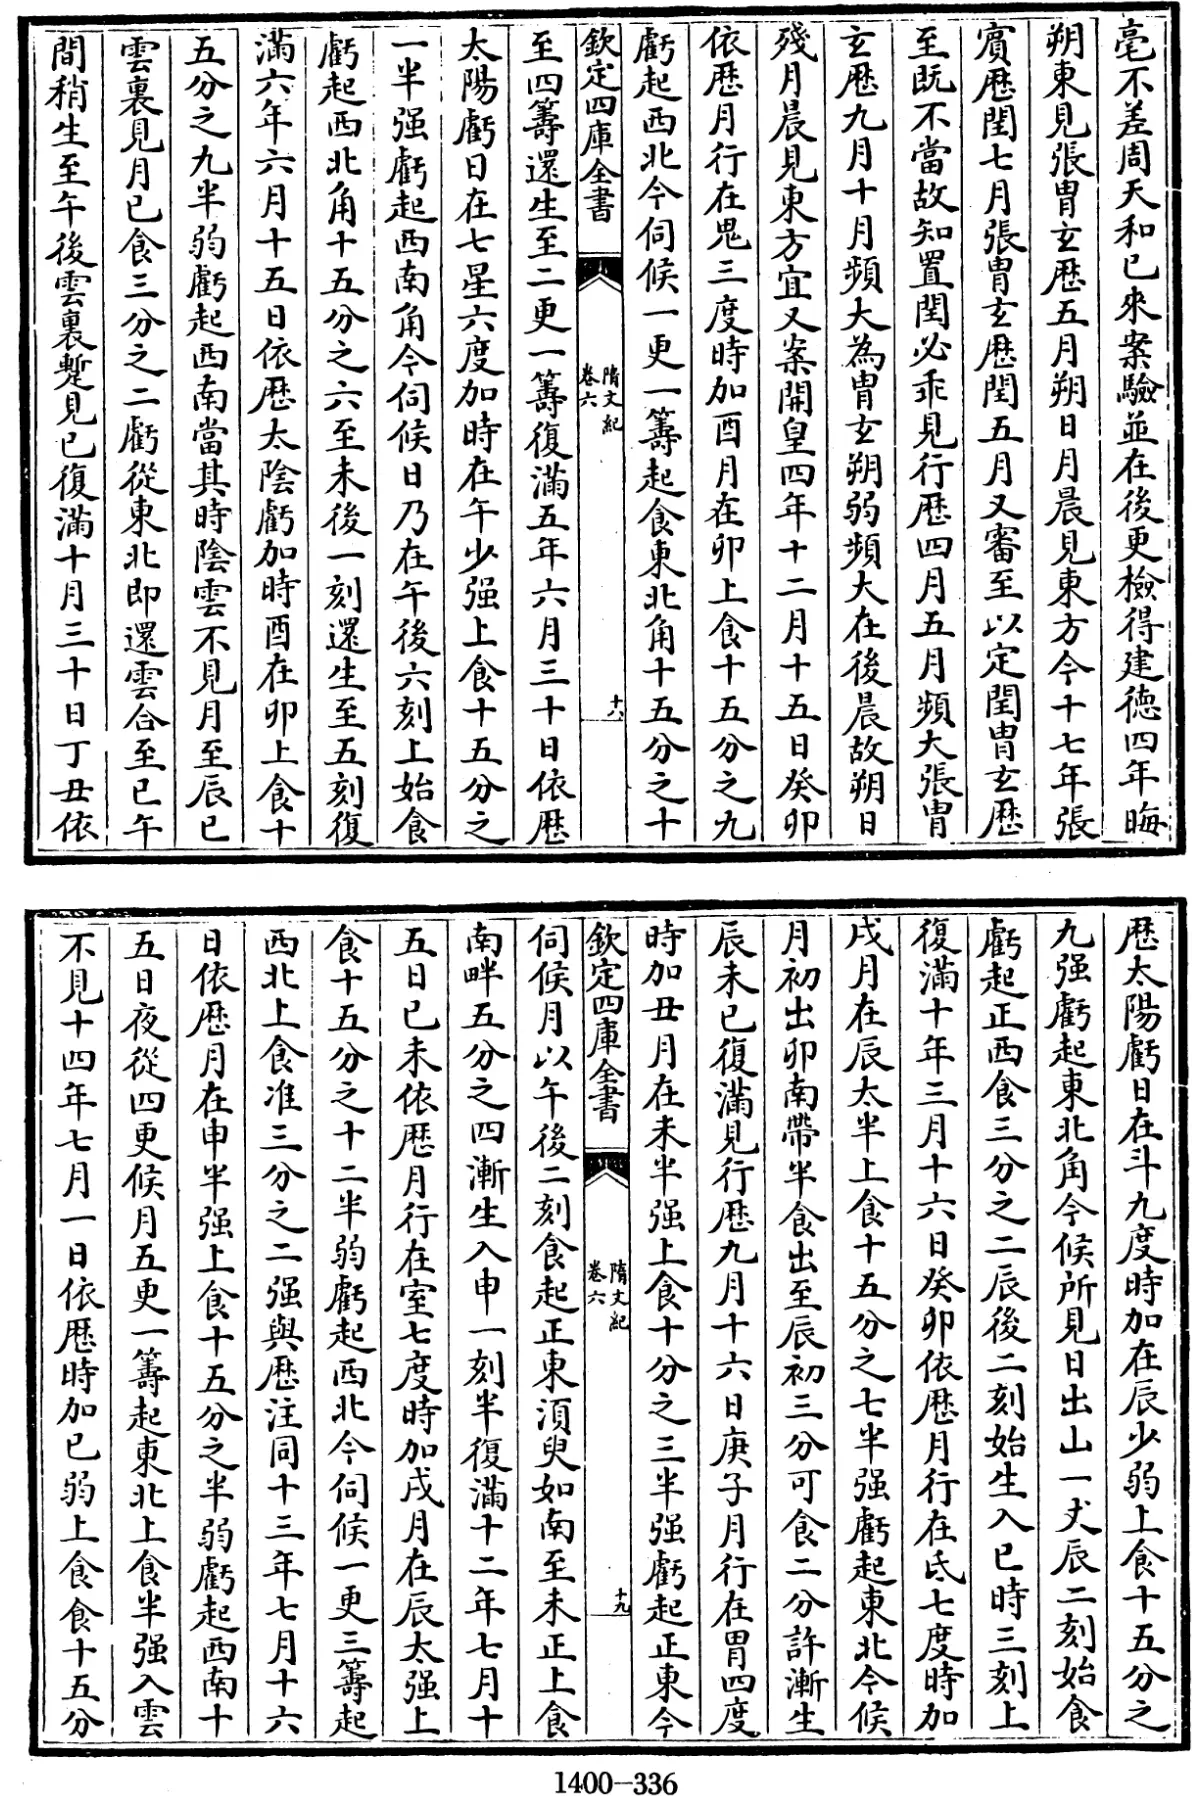 毫不差周天和已來案驗並在後更檢得建德四年晦
朔東見張胄玄厯五月朔日月晨見東方今十七年張
賓厯閏七月張胄玄厯閏五月又審至以定閏胄玄厯
至既不當故知置閏必乖見行厯四月五月頻大張胄
玄厯九月十月頻大為胄玄朔弱頻大在後晨故朔日
殘月晨見東方宜又案開皇四年十二月十五日癸卯
依厯月行在鬼三度時加酉月在卯上食十五分之九
虧起西北今伺候一更一籌起食東北角十五分之十
欽定四庫全書
隋文紀
卷六
十八
至四籌還生至二更一籌復滿五年六月三十日依厯
太陽虧日在七星六度加時在午少强上食十五分之
一半强虧起西南角今伺候日乃在午後六刻上始食
虧起西北角十五分之六至未後一刻還生至五刻復
滿六年六月十五日依厯太陰虧加時酉在卯上食十
五分之九半弱虧起西南當其時陰雲不見月至辰已
雲裏見月已食三分之二虧從東北即還雲合至已午
間稍生至午後雲裏蹔見已復滿十月三十日丁丑依
厯太陽虧日在斗九度時加在辰少弱上食十五分之
九强虧起東北角今候所見日出山一丈辰二刻始食
虧起正西食三分之二辰後二刻始生入已時三刻上
復滿十年三月十六日癸卯依厯月行在氐七度時加
戌月在辰太半上食十五分之七半强虧起東北今候
月初出卯南帶半食出至辰初三分可食二分許漸生
辰未已復滿見行厯九月十六日庚子月行在胃四度
時加丑月在未半强上食十分之三半强虧起正東今
欽定四庫全書
隋文紀
卷六
十九
伺候月以午後二刻食起正東湏臾如南至未正上食
南畔五分之四漸生入申一刻半復滿十二年七月十
五日已未依厯月行在室七度時加戌月在辰太强上
食十五分之十二半弱虧起西北今伺候一更三籌起
西北上食准三分之二强與厯注同十三年七月十六
日依厯月在申半强上食十五分之半弱虧起西南十
五日夜從四更候月五更一籌起東北上食半强入雲
不見十四年七月一日依厯時加已弱上食食十五分
1400-336